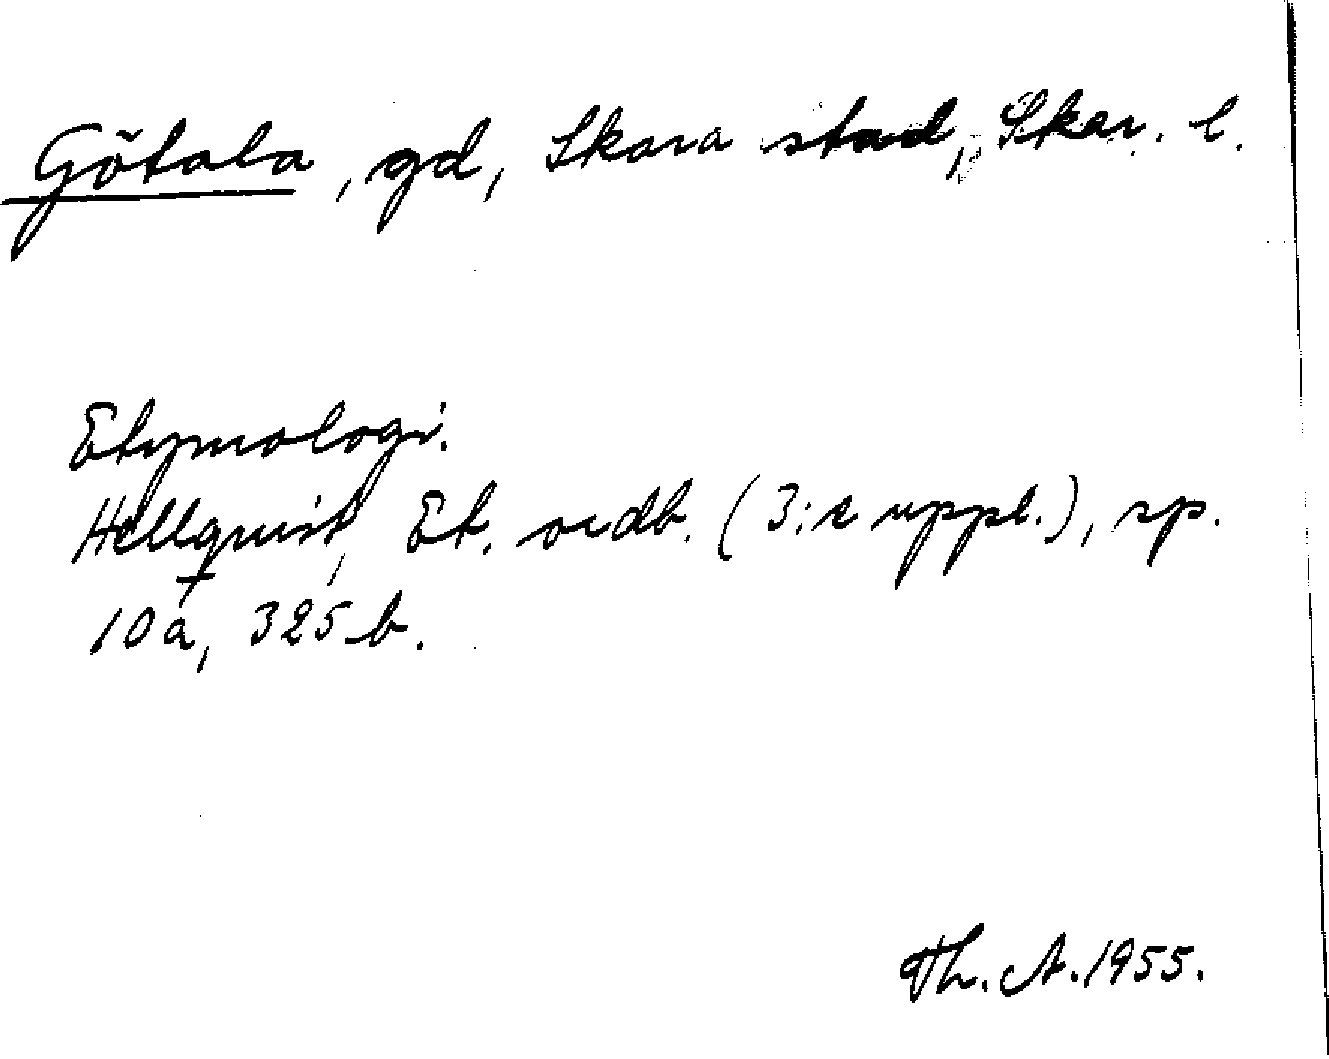 Götala, gd, Skara stad, Skar. l.
Etymologi.
Hellquist, Et. ordb. (3:e uppl.), sp.
10 a, 325 b.
Th. A. 1955.